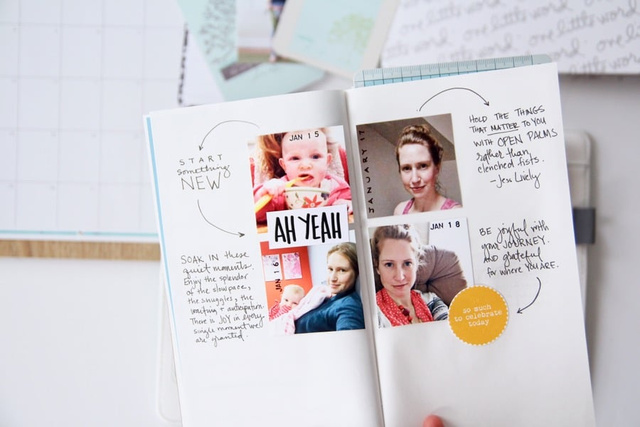 one little word
one little word
START
something
NEW
JAN 15
AH YEAH
JAN 16
SOAK IN these
quiet moments.
Enjoy the splendor
of the slow pace,
the snuggles, the
waiting + anticipation.
There is JOY in every
single moment we
are granted.
JANUARY 17
HOLD THE THINGS
THAT MATTER TO YOU
WITH OPEN PALMS
rather than
clenched fists.
-Jess Lively
JAN 18
BE joyful with
your JOURNEY.
AND grateful
for where YOU ARE.
so much
to celebrate
today